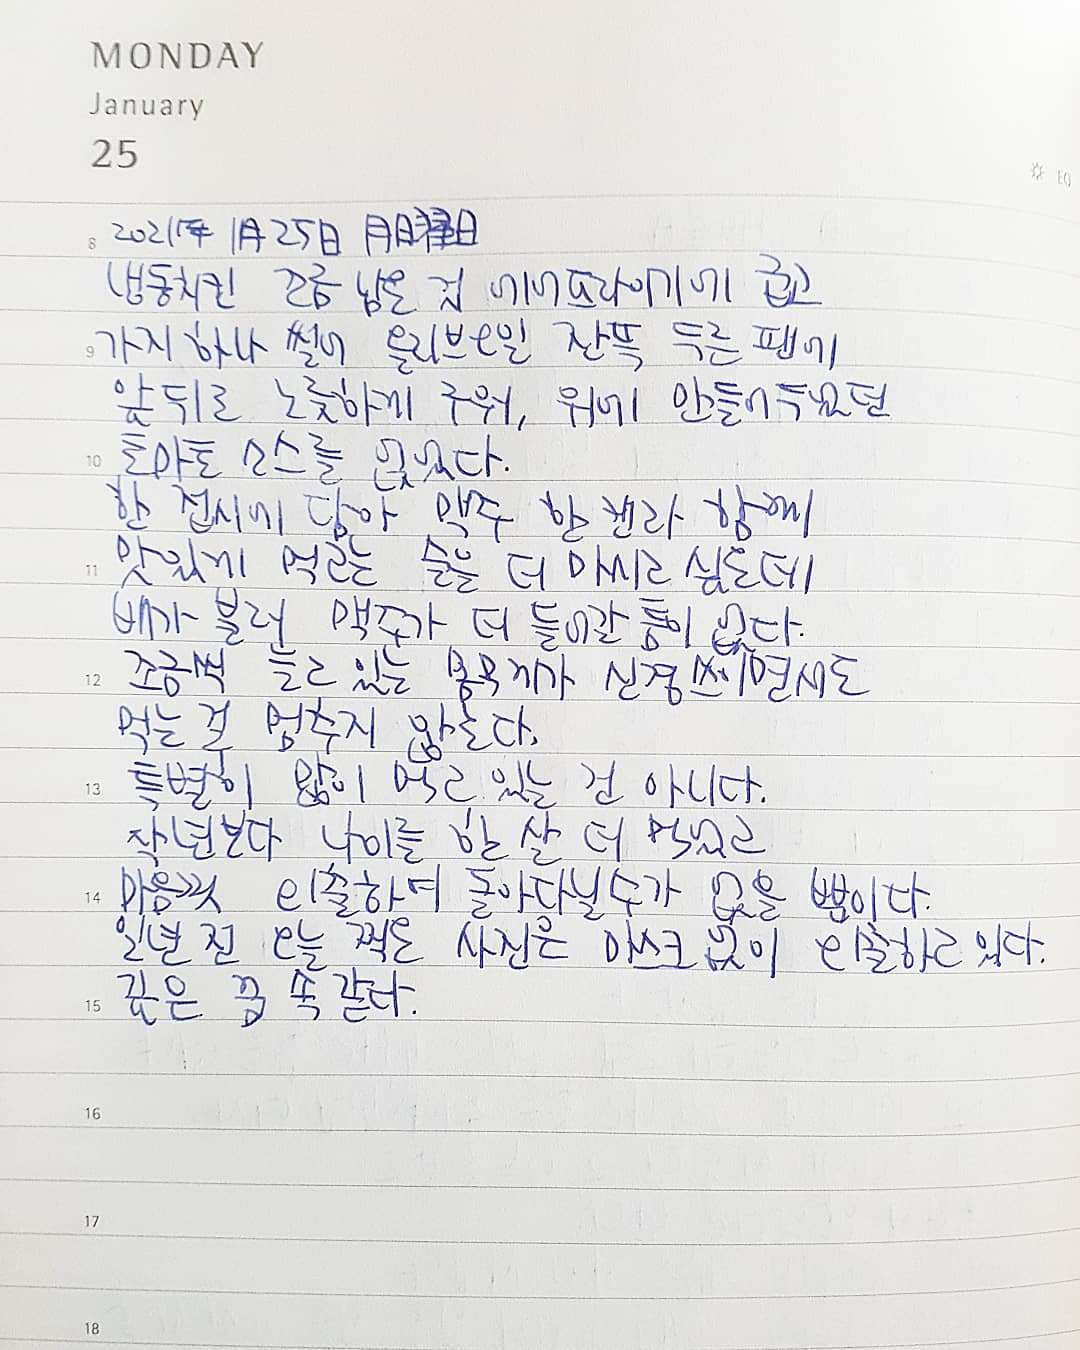 MONDAY
January
25
EQ
8 2021年 1月 25日 月曜日
냉동치킨 조금 남은 것 에어프라이기에 굽고
9 가지 하나 썰어 올리브오일 잔뜩 두른 팬에
앞뒤로 노릇하게 구워, 위에 만들어두었던
10 토마토 소스를 얹었다.
한 접시에 담아 맥주 한 캔과 함께
11 맛있게 먹고는 술을 더 마시고 싶은데
배가 불러 맥주가 더 들어갈 틈이 없다.
12 조금씩 늘고 있는 몸무게가 신경쓰이면서도
먹는 걸 멈추지 않는다.
13 특별히 많이 먹고 있는 건 아니다.
작년보다 나이를 한 살 더 먹었고
14 마음껏 외출하며 돌아다닐수가 없을 뿐이다.
일년 전 오늘 찍은 사진은 마스크 없이 외출하고 있다.
15 깊은 꿈 속 같다.
16
17
18